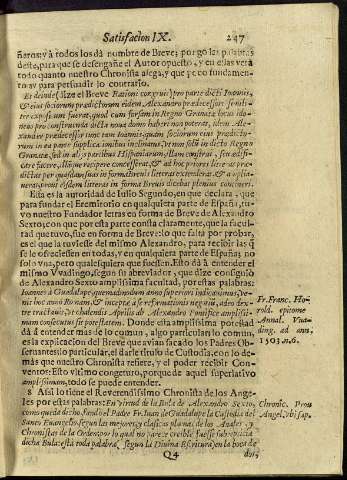 Satisfacion IX. 247
ñaros: y à todos los dà nombre de Breve; pongo las palabras
deste, para que se desengañe el Autor opuesto, y en ellas verà
todo quanto nuestro Chronista alega, y que fundamen-
to ay para persuadir lo contrario.
Et deinde (dize el Breve Rationi congruit) pro parte dicti Ioannis,
& eius sociorum prædictorum eidem Alexandro prædecessori
exposi fuerat, quod cum forsan in Regno Granatæ locus ido-
neus pro construenda dicta nova domo haberi non poterat, idem Ale-
xander prædecessor tunc tam Ioannis, quàm sociorum eius prædicto-
rum in ea parte supplicationibus inclinatus, ut non solum in dicto Regno
Granatæ, sed in alijs partibus Hispaniarum, illam construi, seu ædifi-
cari facere, illam recipere concesserat, & ad hoc priores literas præ-
dictas per quasdam suas in forma Brevis literas extenderat, &
prout eisdem literis in forma Brevis dicebat plenius contineri.
Esta es la autoridad de Iulio Segundo, en que declara, que
para fundar el Eremitorio en qualquiera parte de España, tu-
vo nuestro Fundador letras en forma de Breve de Alexandro
Sexto; con que por esta parte consta claramente, que la facul-
tad que tuvo, fue en forma de Breve: lo que falta por probar,
es el que la tuviesse del mismo Alexandro, para recibir las que
se le ofreciessen en todas, y en qualquiera parte de España; no
solo vna, pero qualesquiera que fuessen. Esto dà à entender el
mismo Vvadingo, segun su abreviador, que dize consiguiò
de Alexandro Sexto amplissima facultad, por estas palabras:
Ioannes à Guadalupe, quemadmodum anno superiori
hoc anno Romam, & incepta reformationis negotia,
Calendis Aprilis ab Alexandro Pontifice amplissi-
mam consecutus est potestatem. Donde esta amplissima potestad
dà à entender mas de lo comun, algo particular: lo comun
es la explicacion del Breve que avian sacado los Padres Ob-
servantes: lo particular, el darle titulo de Custodia, con lo de-
màs que nuestro Chronista refiere, y el poder recibir Con-
ventos: Esto vltimo congeturo, porque de aquel superlativo
amplissimam, todo se puede entender.
8 Assi lo siente el Reverendissimo Chronista de los Ange-
les por estas palabras: En virtud de la Bula de Alexandro Sexto,
como queda dicho, fundò el Padre Fr. Iuan de Guadalupe la Custodia del
Santo Evangelio, segun las mejores, y clasicas plumas de los Anales, y
Chronistas de la Orden; por lo qual no parece creible fuesse subrepticia
dicha Bula: està toda palabra, segun la Divina Escritura, en la boca de
Q4 dos,
Fr. Franc. Ha-
rold. epitome
Annal. Vua-
ding. ad ann.
1503. n. 6.
Chronic. Prou
Angel. vbi sup.